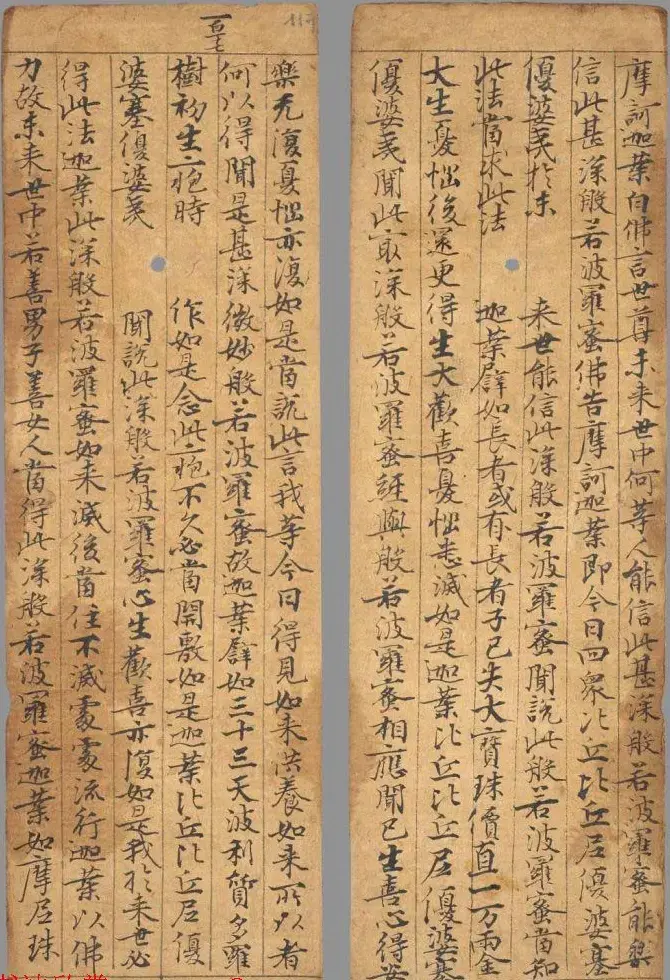 摩訶迦葉白佛言世尊未來世中何等人能信此甚深般若波羅蜜能樂
信此甚深般若波羅蜜佛告摩訶迦葉即今日四眾比丘比丘尼優婆塞
優婆夷於未來世能信此深般若波羅蜜聞說此般若波羅蜜當知
此法當求此法迦葉辟如長者或有長者子已失大寶珠價直一万兩金
大生憂惱後還更得生大歡喜憂惱悉滅如是迦葉比丘比丘尼優婆塞
優婆夷聞此㝡深般若波羅蜜經與般若波羅蜜相應聞已生喜心得
樂无復憂惱亦復如是當說此言我等今日得見如來供養如來所以者
何以得聞是甚深微妙般若波羅蜜故迦葉辟如三十三天波利質多羅
一百七
樹初生皰時作如是念此皰不久必當開敷如是迦葉比丘比丘尼優
婆塞優婆夷聞說此深般若波羅蜜心生歡喜亦復如是我於來世必
得此法迦葉此深般若波羅蜜如來滅後當住不滅處處流行迦葉以佛
力故未來世中若善男子善女人當得此深般若波羅蜜迦葉如摩尼珠